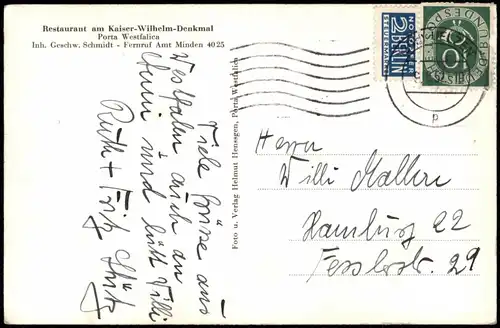 Restaurant am Kaiser-Wilhelm-Denkmal
Porta Westfalica
Inh. Geschw. Schmidt - Fernruf Amt Minden 4025
Viele Grüsse aus
Westfalen auch an
und Willi
Ruth + Fritz
Foto u. Verlag Helmut Henssgen, Porta Westfalica
NOTOPFER
2 BERLIN
STEUERMARKE
10
p
Herrn
Willi
Hamburg 22
29